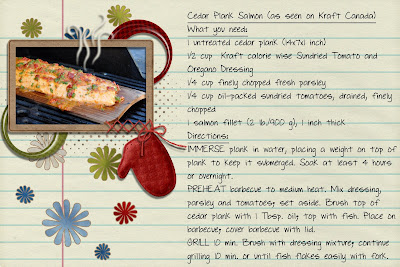 Cedar Plank Salmon (as seen on Kraft Canada)
What you need:
1 untreated cedar plank (14x7x1 inch)
1/2 cup Kraft calorie wise Sundried Tomato and
Oregano Dressing
1/4 cup finely chopped fresh parsley
1/4 cup oil-packed sundried tomatoes, drained, finely
chopped
1 salmon fillet (2 lb./900 g), 1 inch thick
Directions:
IMMERSE plank in water, placing a weight on top of
plank to keep it submerged. Soak at least 4 hours
or overnight.
PREHEAT barbecue to medium heat. Mix dressing,
parsley and tomatoes; set aside. Brush top of
cedar plank with 1 Tbsp. oil; top with fish. Place on
barbecue; cover barbecue with lid.
GRILL 10 min. Brush with dressing mixture; continue
grilling 10 min. or until fish flakes easily with fork.